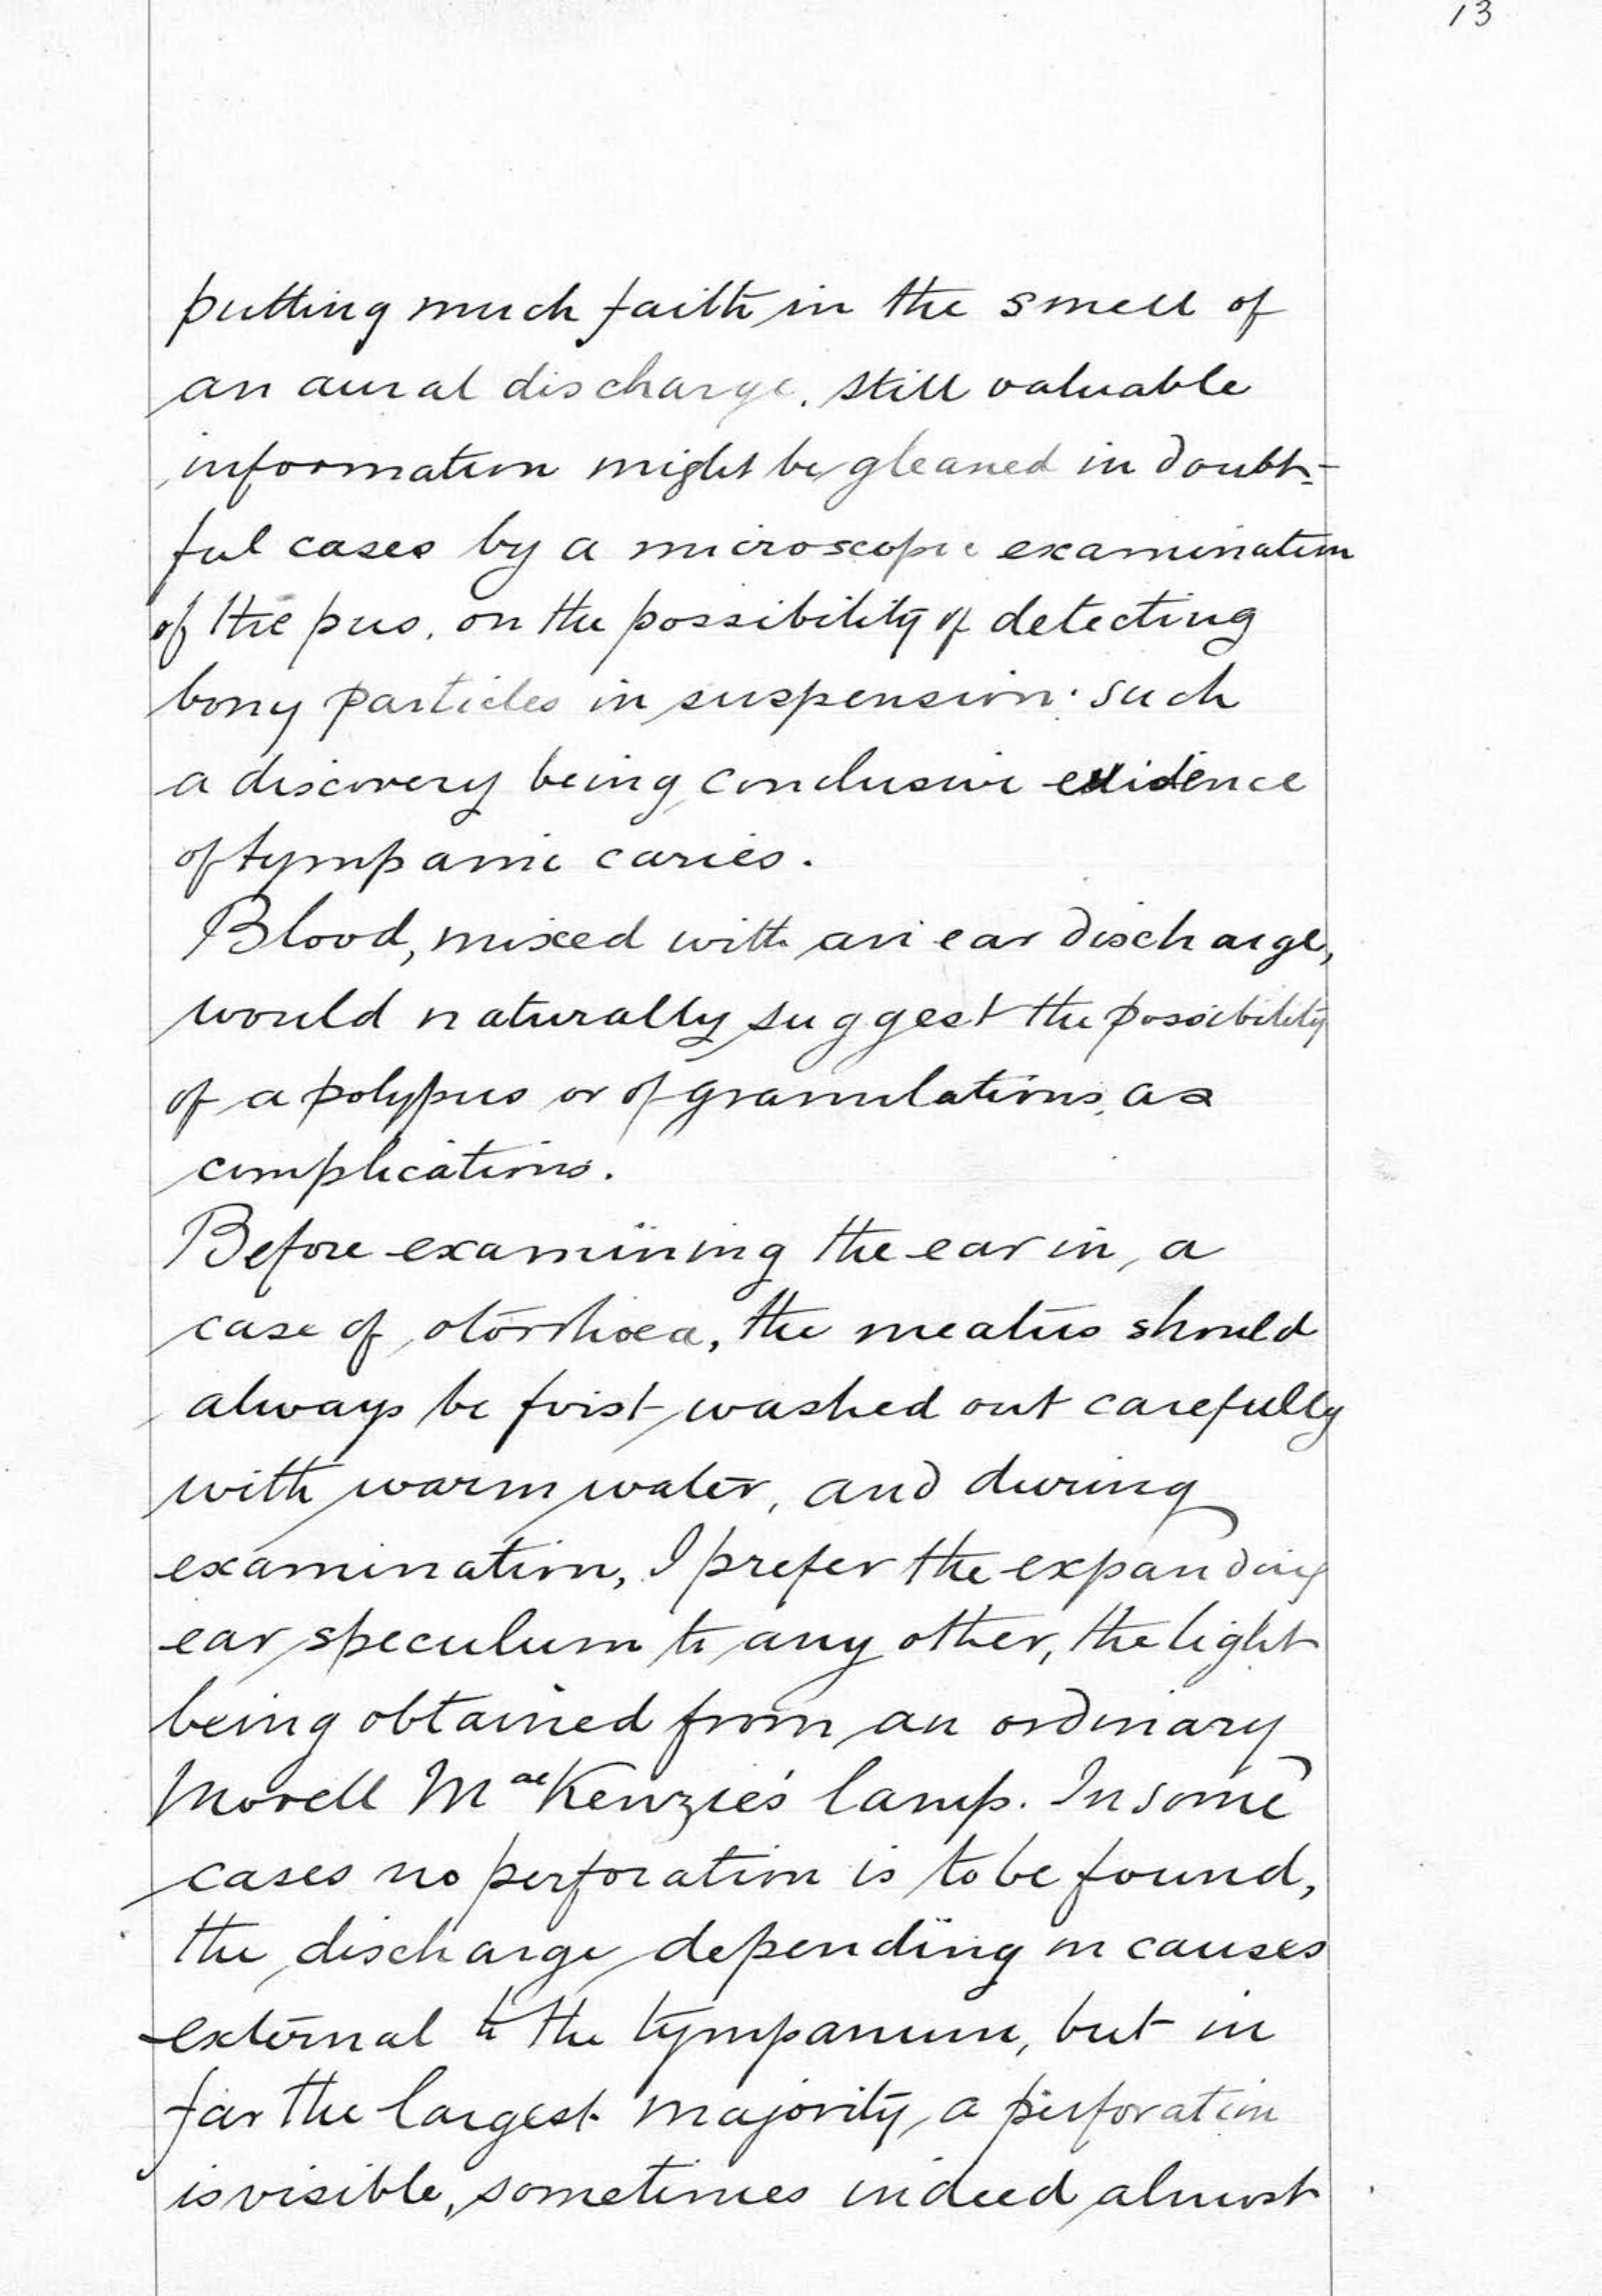 13
putting much faith in the smell of
an aural discharge, still valuable
information might be gleaned in doubt-
ful cases by a microscopic examination
of the pus, on the possibility of detecting
bony particles in suspension: such
a discovery being conclusive evidence
of tympanic caries.
Blood, mixed with an ear discharge,
would naturally suggest the possibility
of a polypus or of granulations, as
complications.
Before examining the ear in, a
case of otorrhoea, the meatus should
always be first washed out carefully
with warm water, and during
examination, I prefer the expanding
ear speculum to any other, the light
being obtained from an ordinary
Morell MacKenzie's lamp. In some
cases no perforation is to be found,
the discharge depending on causes
external to the tympanum, but in
far the largest majority, a perforation
is visible, sometimes indeed almost